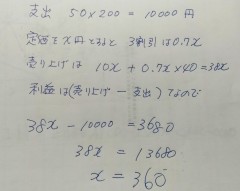 支出 50×200 = 10000円
定価をx円とすると 3割引は0.7x
売り上げは 10x + 0.7x×40=38x
利益は(売り上げ - 支出) なので
38x - 10000 = 3680
38x = 13680
x = 360